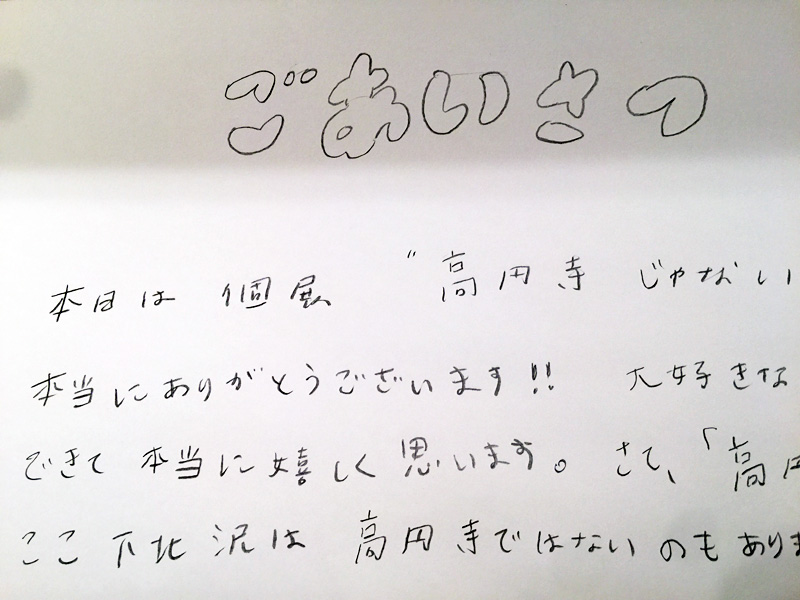 ごあいさつ
本日は 個展 "高円寺 じゃない
本当にありがとうございます!! 大好きな
できて 本当に嬉しく思います。さて、「高円
ここ下北沢は 高円寺ではないのもありま